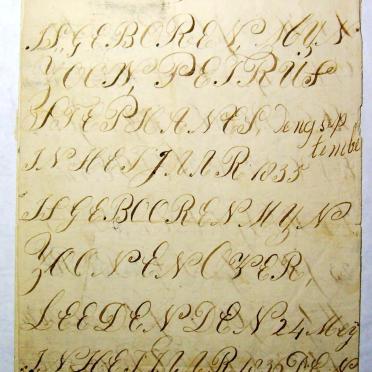 IS, GEBOREN, MYN
ZOON, PETRUS
STEPHANES, den 9 sep
timbe
IN HET JAAR 1835
IS GEBOOREN MYN
ZOON EN OVER,
LEEDEN DEN 24 Mey
IN HET JAAR 183 DEN